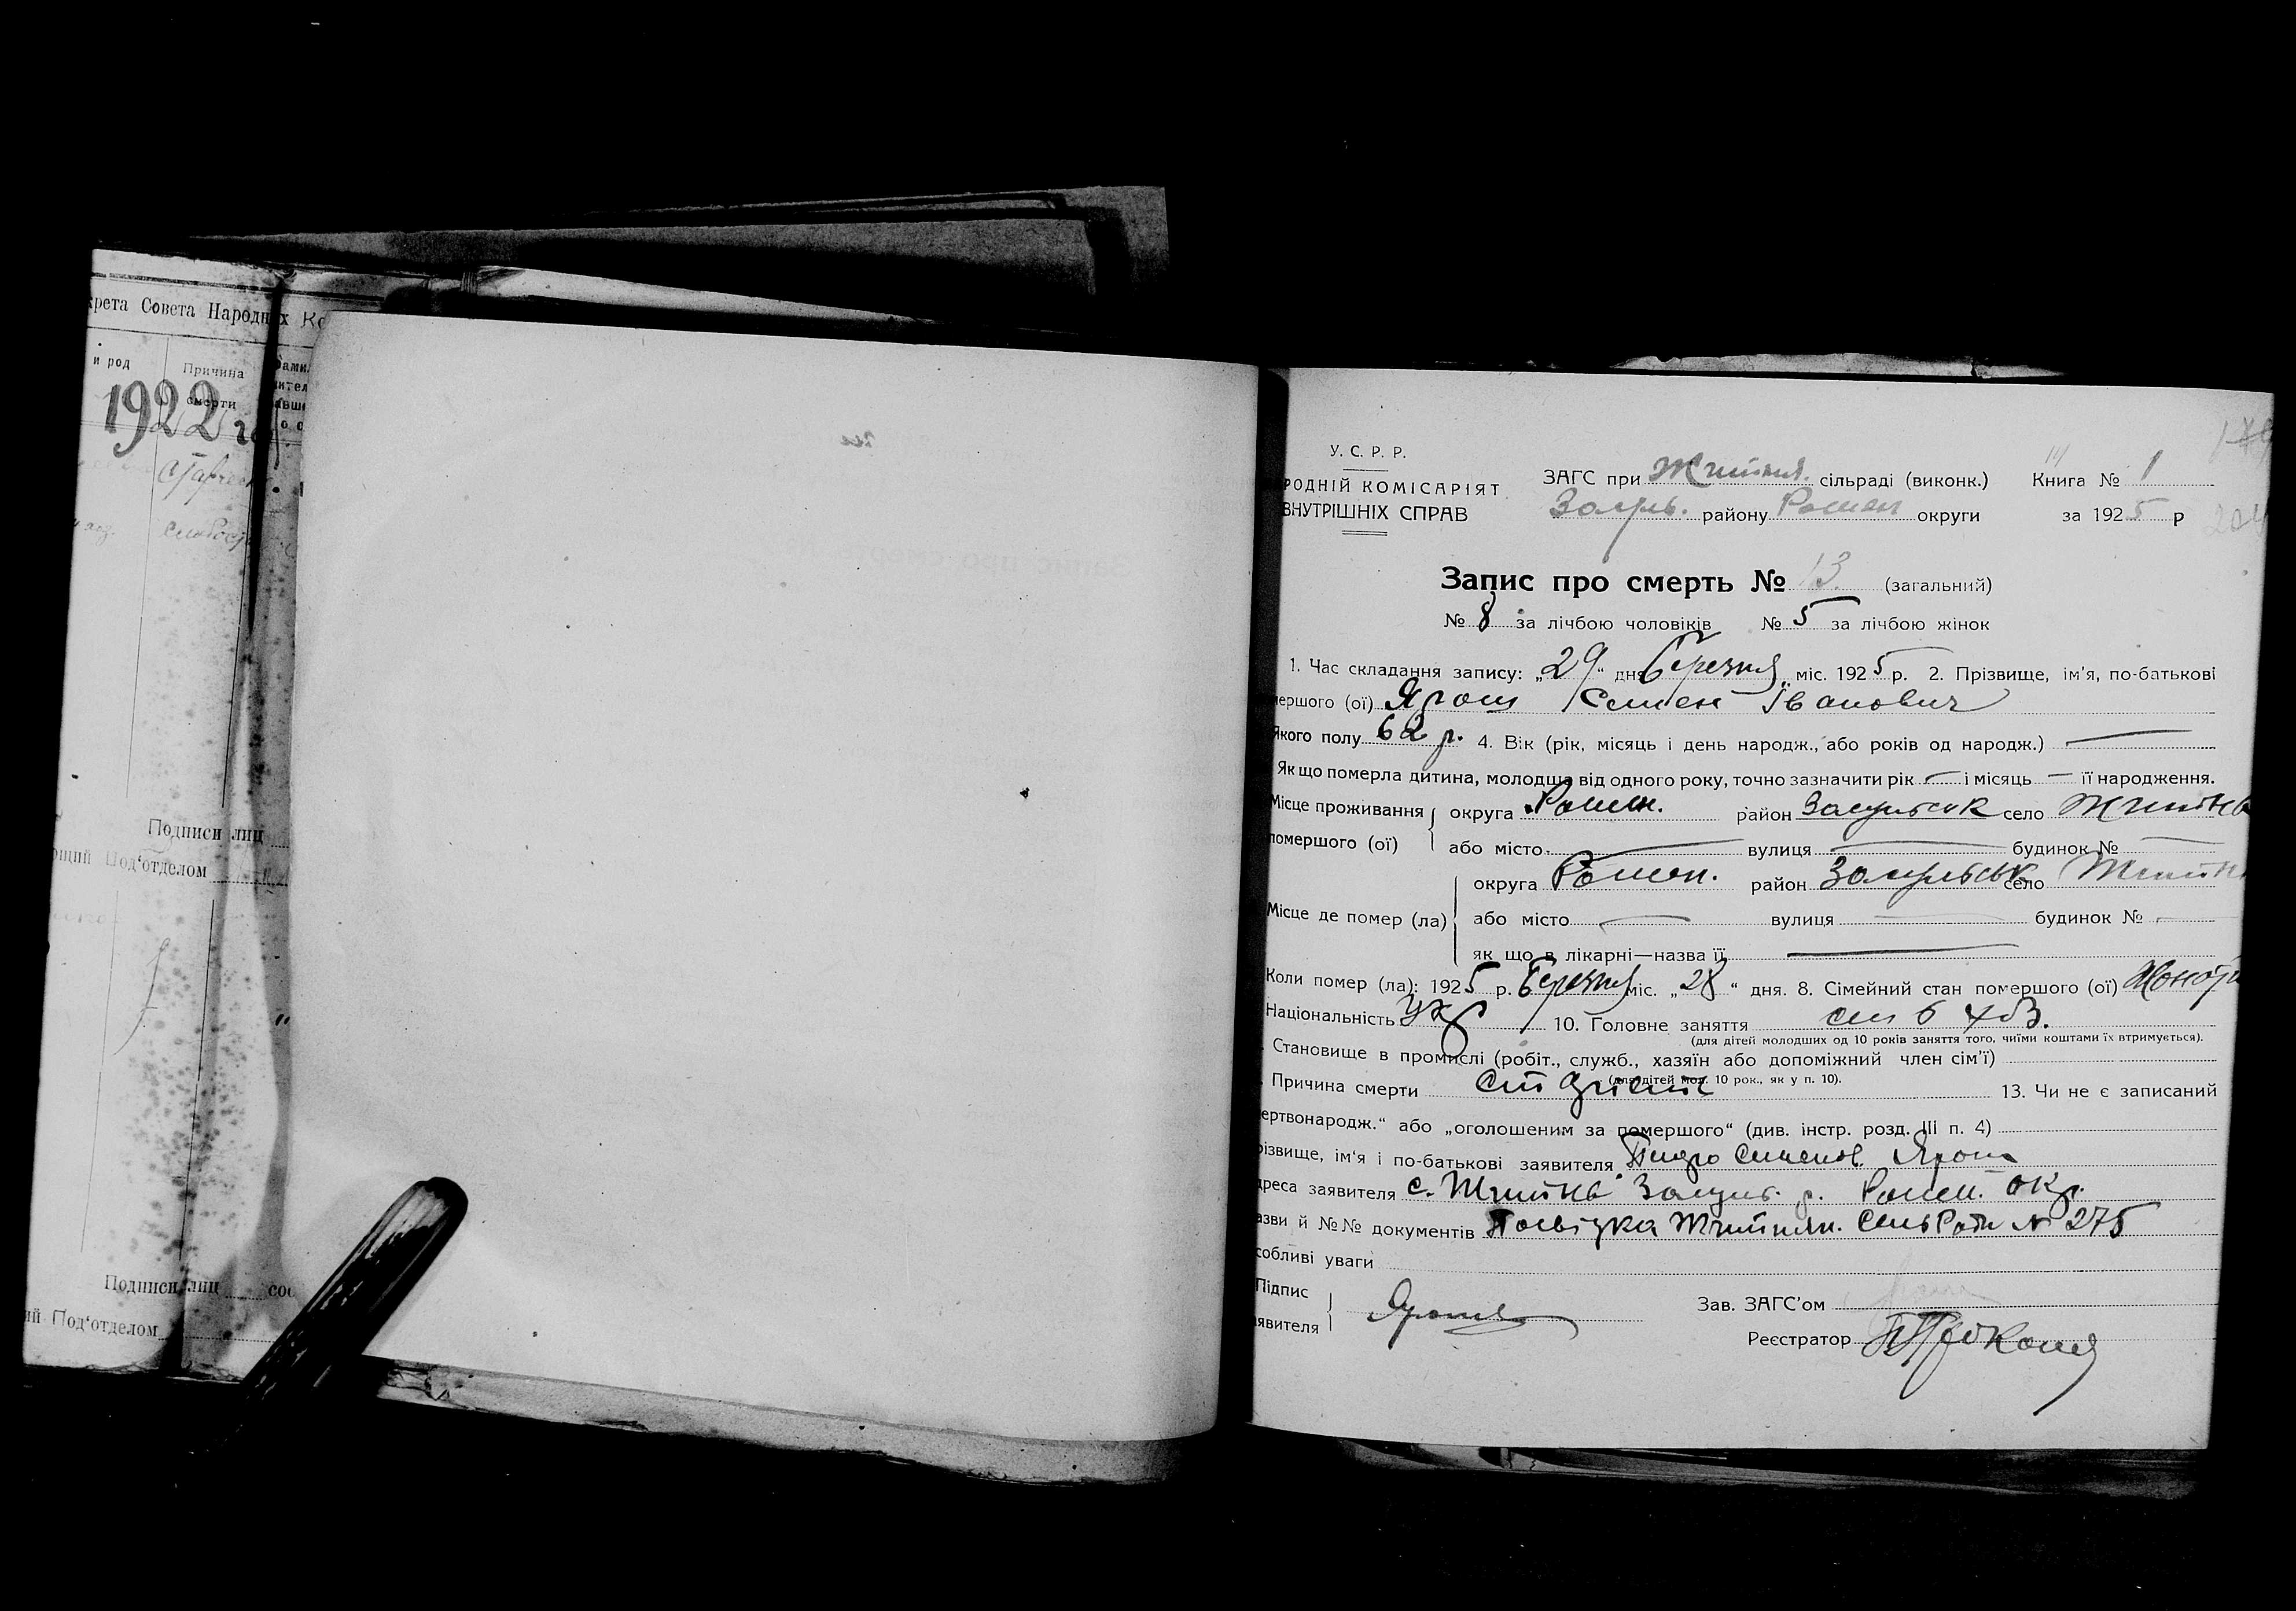 крета Совета Народных Ко
и род
Причина
смерти
1922 го
Подписи лиц
ющий Под‘отделом
Подписи лиц сос
ий Под‘отделом
У. С. Р. Р.
РОДНІЙ КОМІСАРІЯТ
ВНУТРІШНІХ СПРАВ
ЗАГС при сільраді (виконк.)
району Ромен округи
Книга № 1
за 1925 р
Запис про смерть № 13 (загальний)
№ 8 за лічбою чоловіків № 5 за лічбою жінок
1. Час складання запису: „29“ дня березня міс. 1925 р. 2. Прізвище, ім’я, по-батькові
мершого (ої) Ярош Семен Іванович
Якого полу 62 р. 4. Вік (рік, місяць і день народж., або років од народж.) —
Як що померла дитина, молодша від одного року, точно зазначити рік — і місяць — її народження.
Місце проживання округа Ромен. район Засульськ село
помершого (ої) або місто — вулиця — будинок № —
округа Ромен. район Засульськ село
Місце де помер (ла) або місто — вулиця — будинок № —
як що в лікарні—назва її —
Коли помер (ла): 1925 р. березня міс. „28“ дня. 8. Сімейний стан помершого (ої)
Національність Укр 10. Головне заняття
(для дітей молодших од 10 років заняття того, чиїми коштами їх втримується).
Становище в промислі (робіт., служб., хазяїн або допоміжний член сім’ї)
(для дітей мол. 10 рок., як у п. 10).
Причина смерти 13. Чи не є записаний
ертвонародж.“ або „оголошеним за помершого“ (див. інстр. розд. III п. 4)
різвище, ім‘я і по-батькові заявителя Ярош
дреса заявителя с. Засульс. р. Ромен. окр.
азви й №№ документів № 275
собливі уваги
Підпис
аявителя
Зав. ЗАГС’ом
Реєстратор